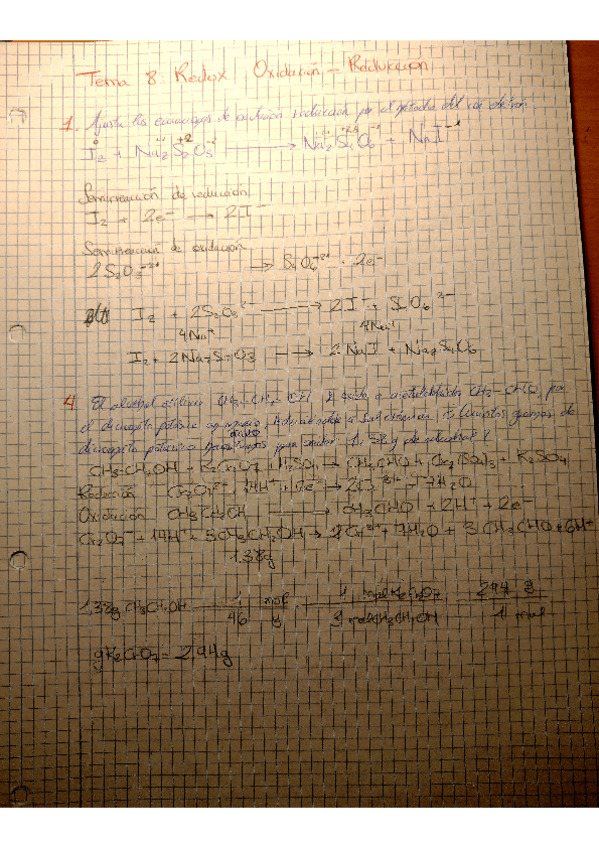 Tema 8: Redox Oxidación - Reducción
1. Ajusta las ecuaciones de oxidación reducción por el método del ión electrón
0 +1 +2 +1 +2,5 -1
I₂ + Na₂S₂O₃ → Na₂S₄O₆ + NaI
Semirreacción de reducción
I₂ + 2e⁻ → 2I⁻
Semirreacción de oxidación
2S₂O₃⁻² → S₄O₆⁻² + 2e⁻
I₂ + 2S₂O₃²⁻ → 2I⁻ + S₄O₆²⁻
4Na⁺ 4Na⁺
I₂ + 2Na₂S₂O₃ → 2NaI + Na₂S₄O₆
4. El alcohol etílico CH₃-CH₂-OH se oxida a acetaldehído CH₃-CHO por
el dicromato potásico en medio ácido
dicromato potásico para oxidar 1,38g de etanol?
CH₃CH₂OH + K₂Cr₂O₇ + H₂SO₄ → CH₃CHO + Cr₂(SO₄)₃ + K₂SO₄
Reducción Cr₂O₇²⁻ + 14H⁺ + 6e⁻ → 2Cr³⁺ + 7H₂O
Oxidación CH₃CH₂OH → CH₃CHO + 2H⁺ + 2e⁻
Cr₂O₇⁻ + 14H⁺ + 3CH₃CH₂OH → 2Cr³⁺ + 7H₂O + 3CH₃CHO + 6H⁺
1,38g
1,38g CH₃CH₂OH · 1 mol / 46 g · 1 mol K₂Cr₂O₇ / 3 mol CH₃CH₂OH · 294 g / 1 mol
g K₂Cr₂O₇ = 2,94g